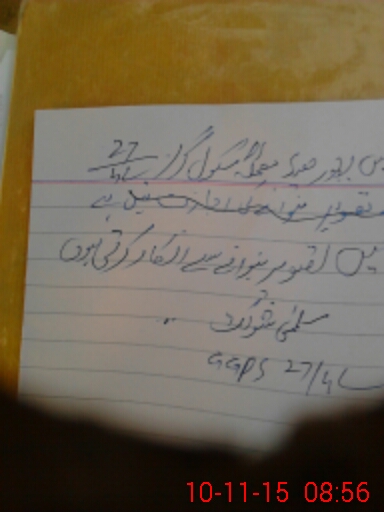 میں بطور صدر معلمہ سکول گرلز 27/4L
تصویر بنوانے کی اجازت نہیں ہے
میں تصویر بنوانے سے انکار کرتی ہوں
سلمیٰ شوکت
GGPS 27/4L
10-11-15 08:56